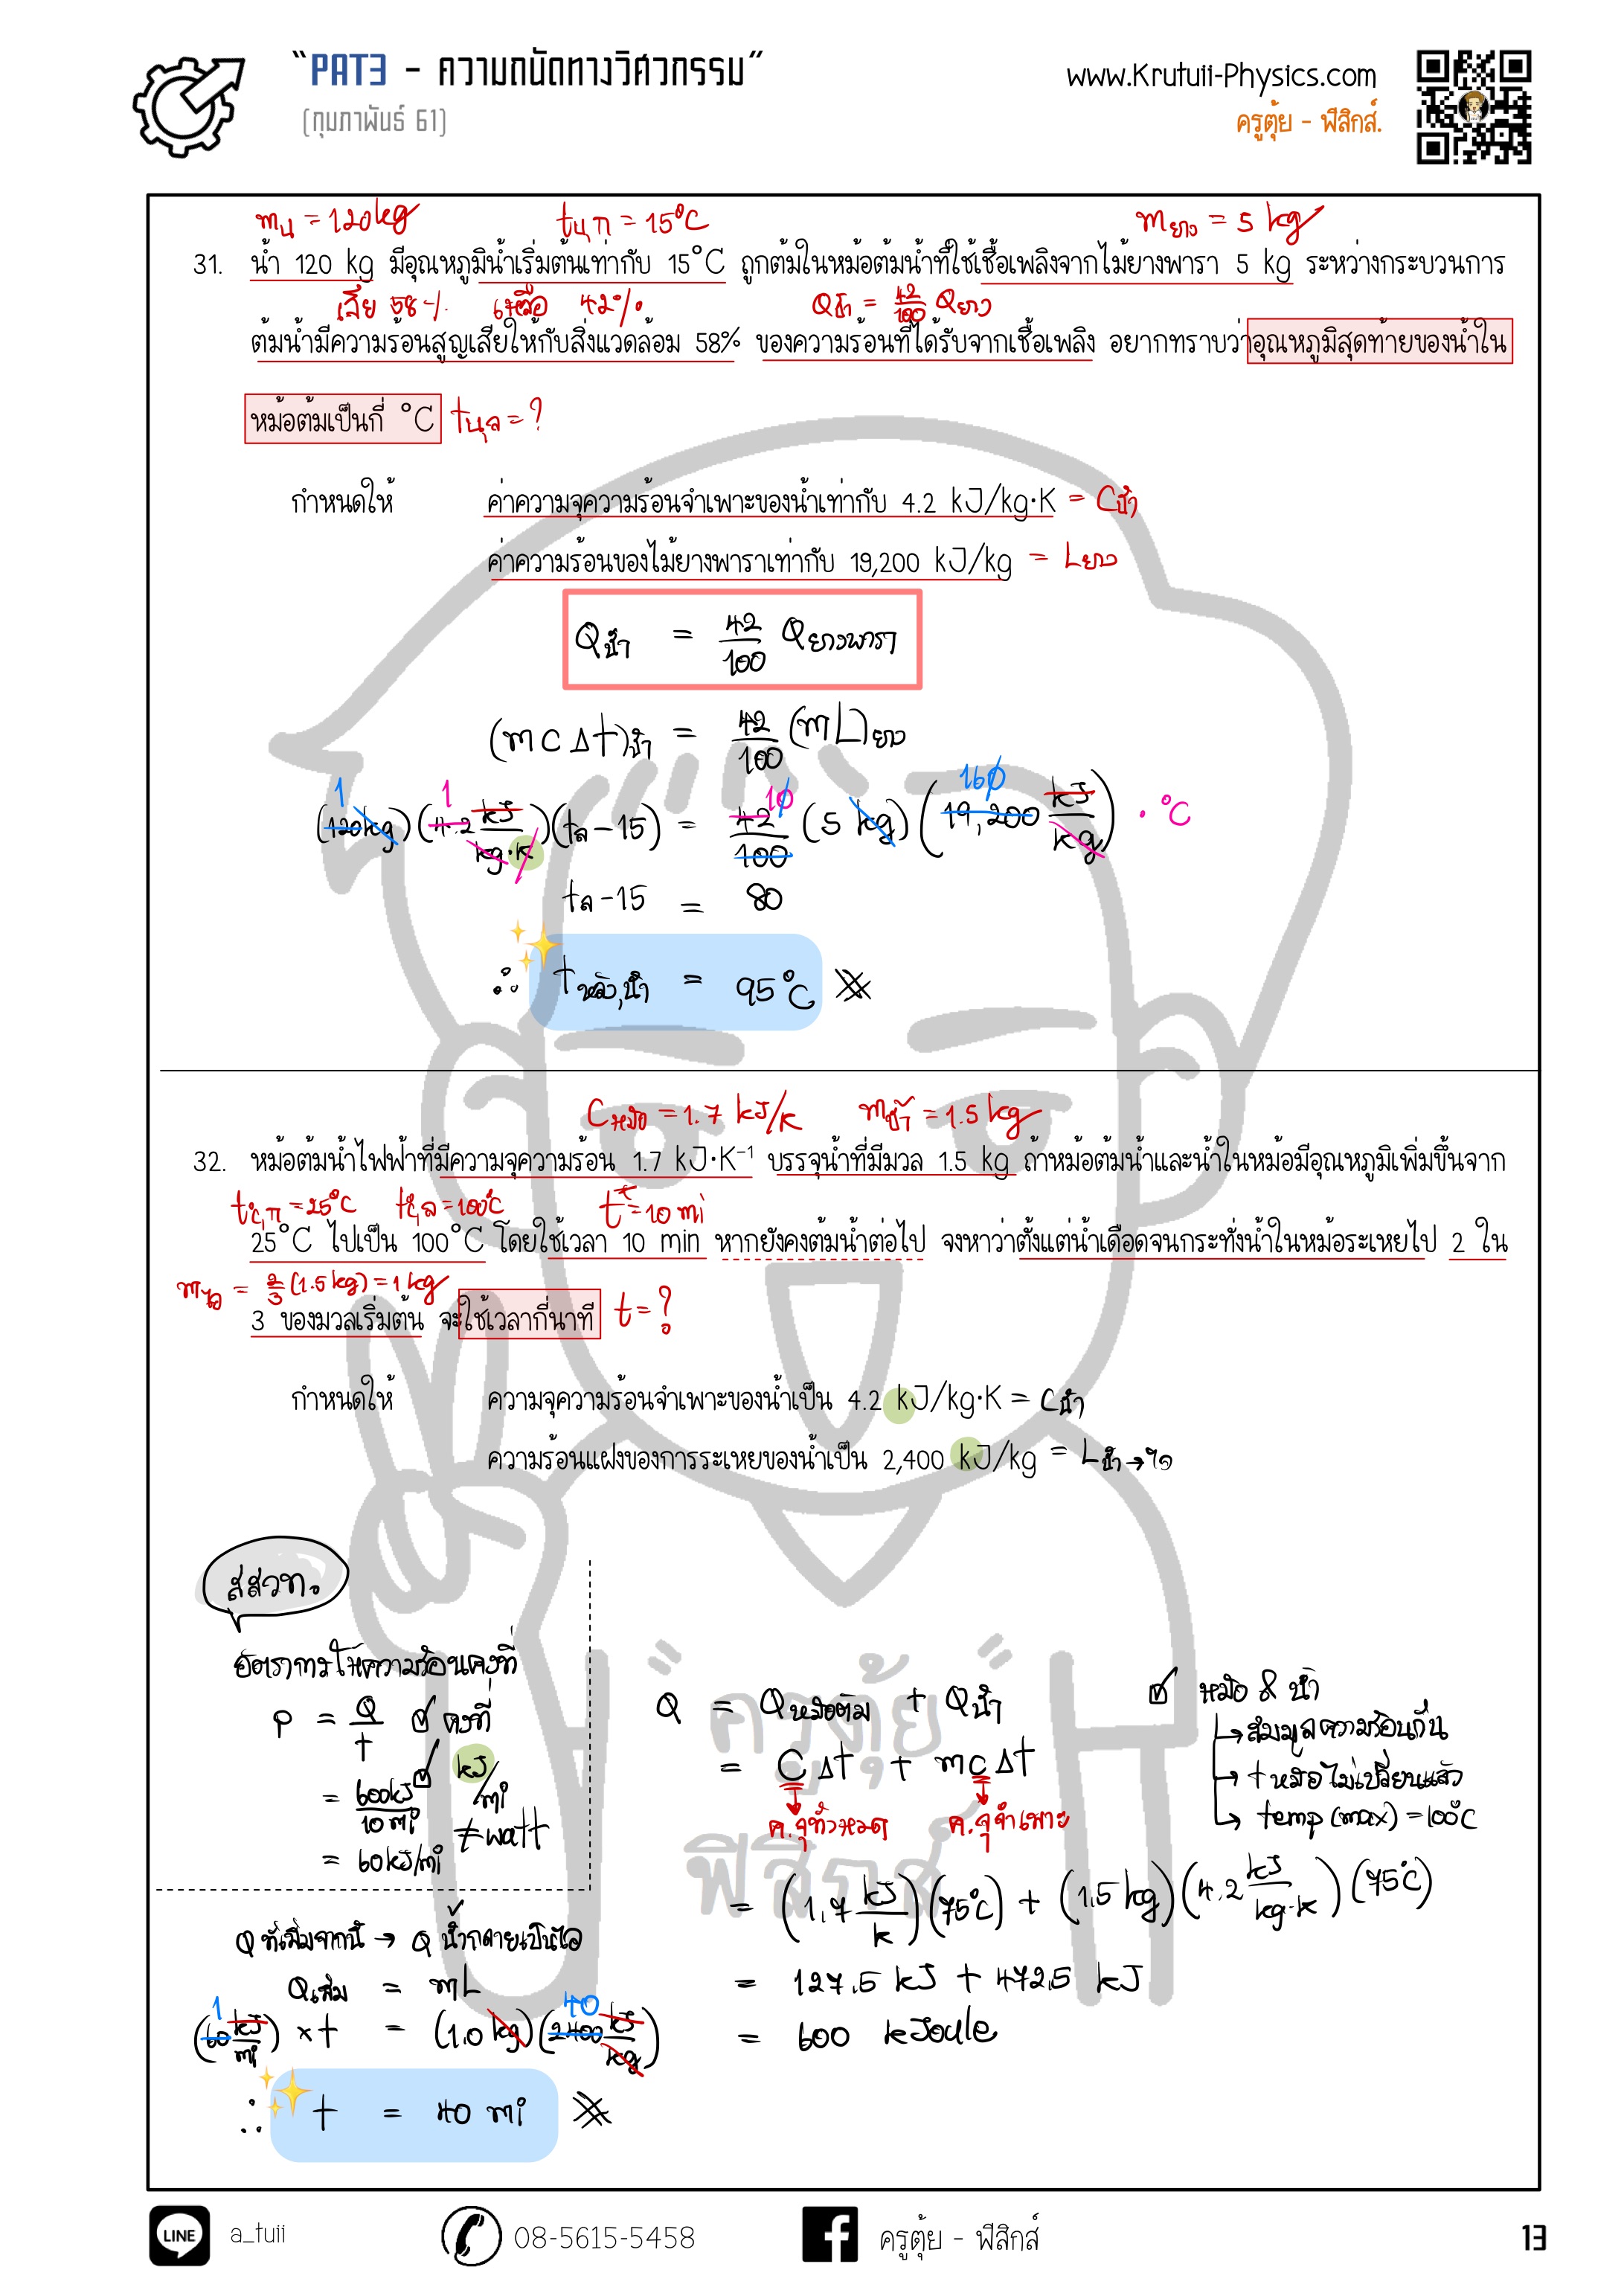 “PAT3 - ความถนัดทางวิศวกรรม”
(กุมภาพันธ์ 61)
www.Krutuii-Physics.com
ครูตุ้ย - ฟิสิกส์.
m น้ำ = 120 kg t น,ก = 15°C m ยาง = 5 kg
31. น้ำ 120 kg มีอุณหภูมิน้ำเริ่มต้นเท่ากับ 15°C ถูกต้มในหม้อต้มน้ำที่ใช้เชื้อเพลิงจากไม้ยางพารา 5 kg ระหว่างกระบวนการ
เสีย 58% เหลือ 42% Q น้ำ = 42/100 Q ยาง
ต้มน้ำมีความร้อนสูญเสียให้กับสิ่งแวดล้อม 58% ของความร้อนที่ได้รับจากเชื้อเพลิง อยากทราบว่าอุณหภูมิสุดท้ายของน้ำใน
หม้อต้มเป็นกี่ °C t น,ล = ?
กำหนดให้ ค่าความจุความร้อนจำเพาะของน้ำเท่ากับ 4.2 kJ/kg·K = C น้ำ
ค่าความร้อนของไม้ยางพาราเท่ากับ 19,200 kJ/kg = L ยาง
Q น้ำ = 42/100 Q ยางพารา
(mcΔt) น้ำ = 42/100 (mL) ยาง
1 1 10 160
(120 kg)(4.2 kJ/kg·K)(t ล - 15) = 42/100 (5 kg)(19,200 kJ/kg) · °C
t ล - 15 = 80
∴ t หลัง,น้ำ = 95°C
C หม้อ = 1.7 kJ/K m น้ำ = 1.5 kg
32. หม้อต้มน้ำไฟฟ้าที่มีความจุความร้อน 1.7 kJ·K⁻¹ บรรจุน้ำที่มีมวล 1.5 kg ถ้าหม้อต้มน้ำและน้ำในหม้อมีอุณหภูมิเพิ่มขึ้นจาก
= 25°C = 100°C t = 10 mi
25°C ไปเป็น 100°C โดยใช้เวลา 10 min หากยังคงต้มน้ำต่อไป จงหาว่าตั้งแต่น้ำเดือดจนกระทั่งน้ำในหม้อระเหยไป 2 ใน
m ไอ = 2/3 (1.5 kg) = 1 kg
3 ของมวลเริ่มต้น จะใช้เวลากี่นาที t = ?
กำหนดให้ ความจุความร้อนจำเพาะของน้ำเป็น 4.2 kJ/kg·K = C น้ำ
ความร้อนแฝงของการระเหยของน้ำเป็น 2,400 kJ/kg = L น้ำ→ไอ
สสวท.
อัตราการให้ความร้อนคงที่
P = Q/t คงที่
= 600 kJ/10 mi kJ/mi
≠ watt
= 60 kJ/mi
Q ที่เพิ่มจากนี้ → Q น้ำกลายเป็นไอ
Q เพิ่ม = mL
1 40
(60 kJ/mi) × t = (1.0 kg)(2400 kJ/kg)
∴ t = 40 mi
Q = Q หม้อต้ม + Q น้ำ
= CΔt + mcΔt
ค.จุทั้งหมด ค.จุจำเพาะ
= (1.7 kJ/K)(75°C) + (1.5 kg)(4.2 kJ/kg·K)(75°C)
= 127.5 kJ + 472.5 kJ
= 600 kJoule
หม้อ & น้ำ
→ สมมูลความร้อนกัน
→ t หม้อไม่เปลี่ยนแล้ว
→ temp (max) = 100°C
"ครูตุ้ย"
ฟิสิกส์
LINE a_tuii
08-5615-5458
ครูตุ้ย - ฟิสิกส์
13